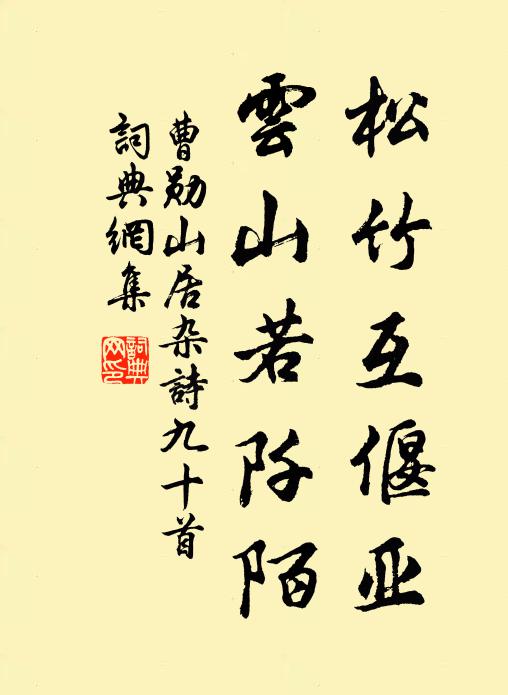 松竹互偃亚
雲山若阡陌
曹勋山居杂詩九十首
詞典網集
詞典
网印